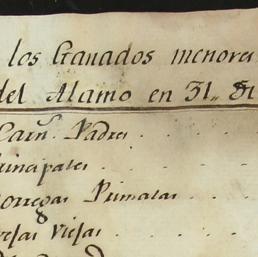 los Granados menores
del Alamo en 31,, de
Carn.s Padres
rincipales
orregas Primalas
vejas Viejas